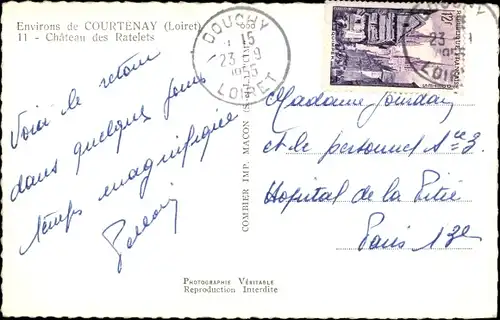 Environs de COURTENAY (Loiret)
11 - Château des Ratelets
DOUCHY
15
23 - 9
LOIRET
12F
Voici le retour
dans quelques jours
temps magnifique
COMBIER IMP. MACON
Madame Jourdan
et le personnel Sce 3.
Hôpital de la Pitié
Paris 13e
PHOTOGRAPHIE VÉRITABLE
Reproduction Interdite